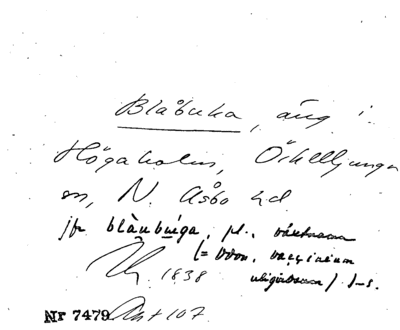 Blåbuka, äng i
Högaholm, Örkelljunga
sn, N. Åsbo hd
jfr blåubuga, pl., växtnamn
(= odon, vaccinium
uliginosum)
1838
Nr 7479 Ant 107